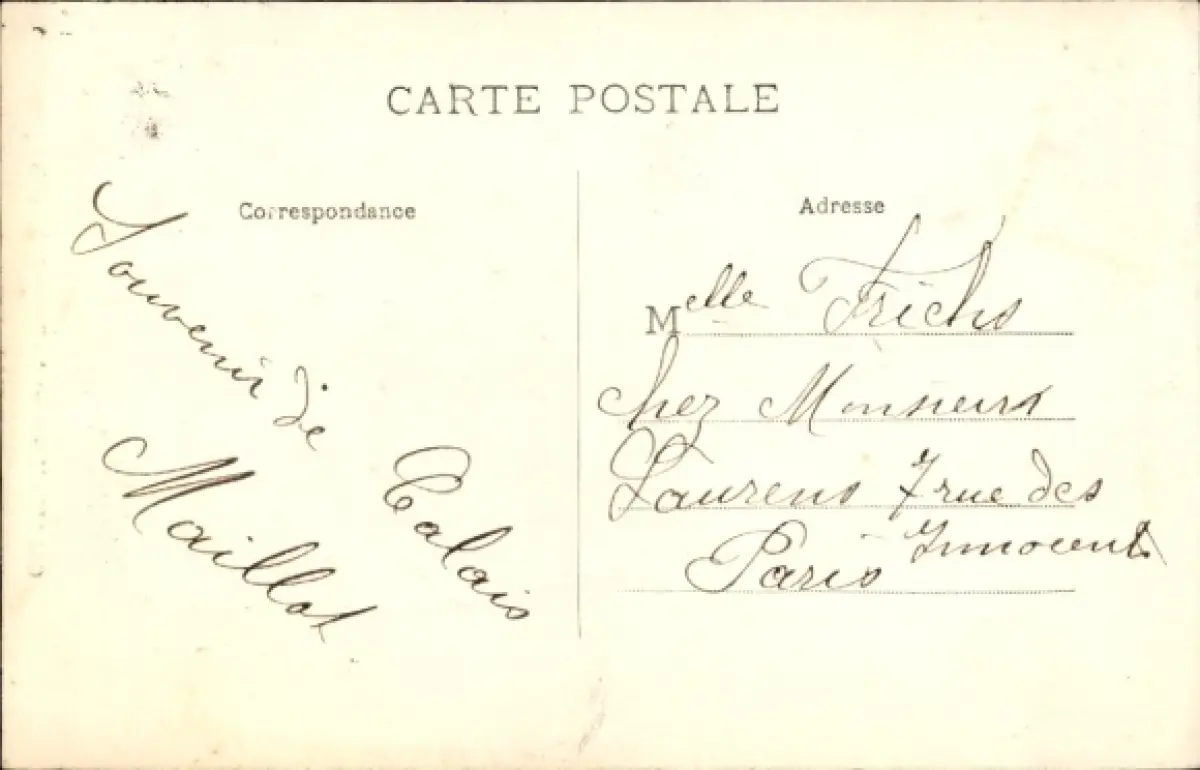 CARTE POSTALE
Correspondance
Souvenir de
Calais
Maillot
Adresse
Melle Frichs
chez Monsieur
Laurens 7 rue des
Innocents
Paris